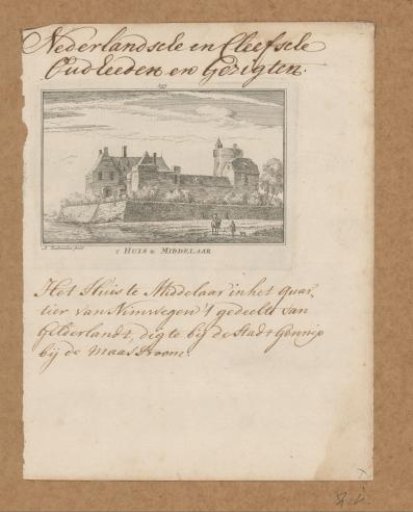 Nederlandsche en Cleefsche
Oudheeden en Gezigten.
't HUIS te MIDDELAAR
Het Huis te Middelaar in het quar,
tier van Nimwegen 't gedeelte van
Gelderlandt, digte bij de Stadt Gennip
bij de Maas Stroom.